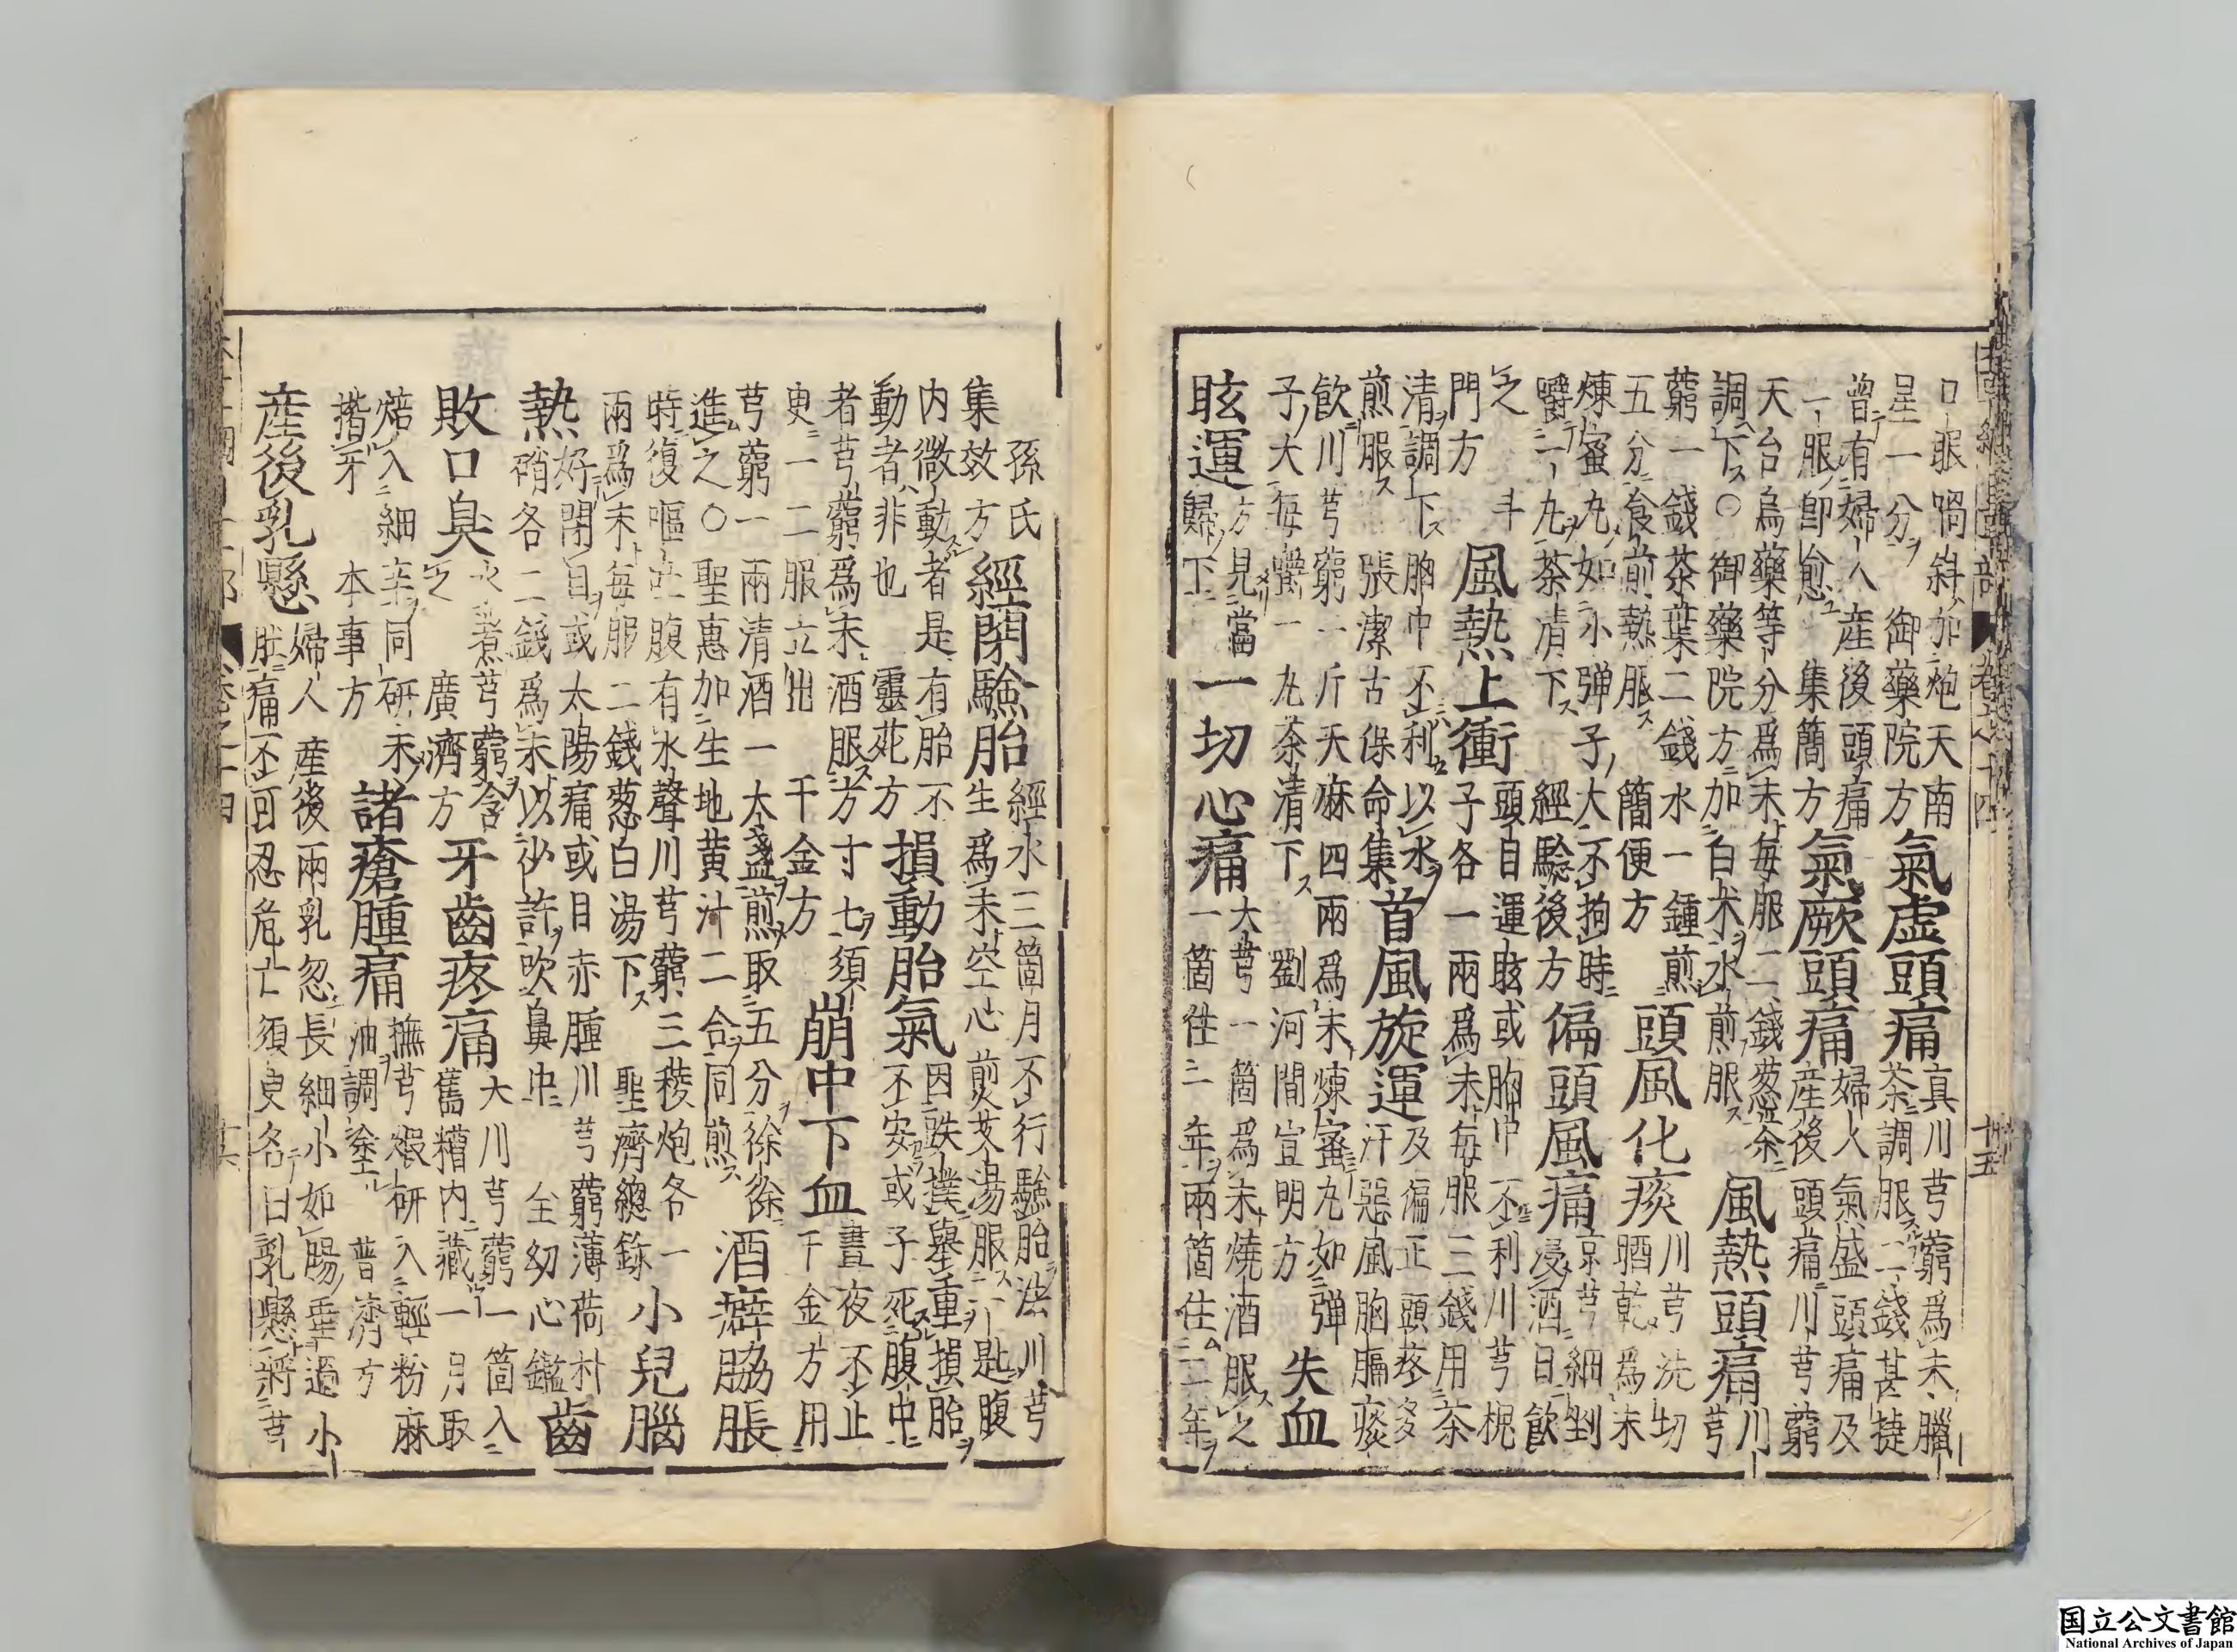 口眼喎斜加炮天南
星一分 御藥院方
氣虛頭痛
真川芎藭為末臘
茶調服二錢甚捷
曾有婦人產後頭痛
一服即愈 集簡方
氣厥頭痛
婦人氣盛頭痛及
產後頭痛川芎藭
天台烏藥等分為末每服二錢葱茶
調下○御藥院方加白朮水煎服
風熱頭痛
川
芎
藭一錢茶葉二錢水一鍾煎
五分食前熱服 簡便方
頭風化痰
川芎洗切
晒乾為末
煉蜜丸如小彈子大不拘時
嚼一丸茶清下 經驗後方
偏頭風痛
京芎細剉
浸酒日飲
之 斗
門方
風熱上衝
頭目運眩或胸中不利川芎槐
子各一兩為末每服三錢用茶
清調下胸中不利以水
煎服 張潔古保命集
首風旋運
及偏正頭疼多
汗惡風胸膈痰
飲川芎藭一斤天麻四兩為末煉蜜丸如彈
子大每嚼一丸茶清下 劉河間宣明方
失血
眩運
方見當
歸下
一切心痛
大芎一箇為末燒酒服之
一箇住一年兩箇住二年
十五
孫氏
集效方
經閉驗胎
經水三箇月不行驗胎法川芎
生為末空心煎艾湯服一匙腹
內微動者是有胎不
動者非也 靈苑方
損動胎氣
因跌撲舉重損胎
不安或子死腹中
者芎藭為末酒服方寸七須
臾一二服立出 千金方
崩中下血
晝夜不止
千金方用
芎藭一兩清酒一大盞煎取五分徐徐
進之○聖惠加生地黃汁二合同煎
酒癖脇脹
時復嘔吐腹有水聲川芎藭三稜炮各一
兩為末每服二錢葱白湯下 聖濟總錄
小兒腦
熱
好閉目或太陽痛或目赤腫川芎藭薄荷朴
硝各二錢為末以少許吹鼻中 全幼心鑑
齒
敗口臭
水煮芎藭含
之 廣濟方
牙齒疼痛
大川芎藭一箇入
舊糟內藏一月取
焙入細辛同研末
揩牙 本事方
諸瘡腫痛
撫芎煅研入輕粉麻
油調塗 普濟方
產後乳懸
婦人產後兩乳忽長細小如腸垂過小
肚痛不可忍危亡須臾名曰乳懸將芎
国立公文書館
National Archives of Japan